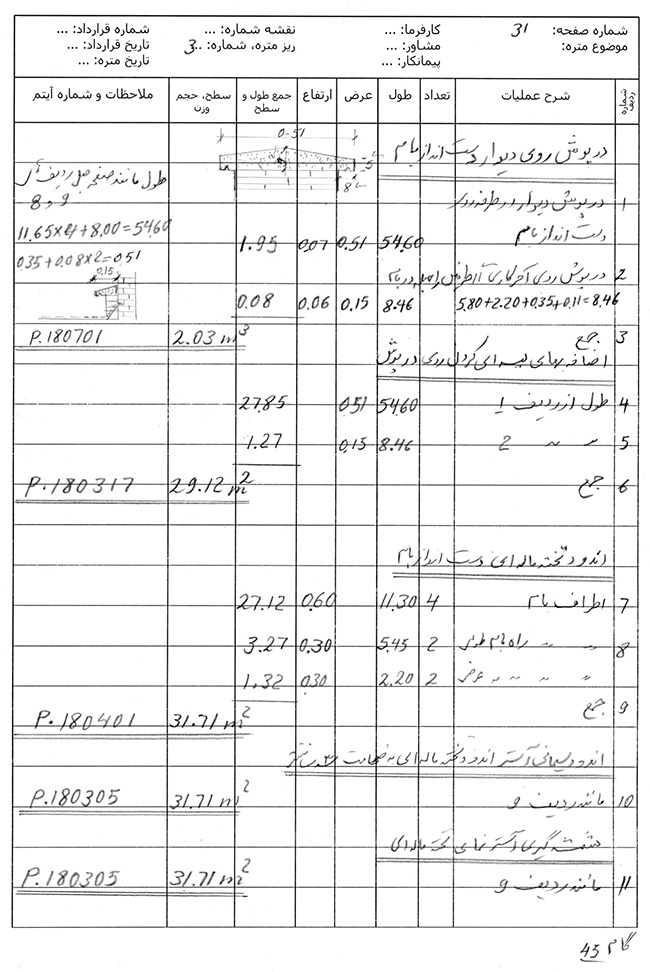 شماره صفحه: 31 کارفرما: ... نقشه شماره: ... شماره قرارداد: ...
موضوع متره: مشاور: ... ریز متره، شماره: 3.. تاریخ قرارداد: ...
پیمانکار: ... تاریخ متره: ...
شماره ردیف شرح عملیات تعداد طول عرض ارتفاع جمع طول و سطح سطح، حجم وزن ملاحظات و شماره آیتم
درپوش روی دیوار دست انداز بام 0.51
طول مانند صفحه قبل ردیف های
8 و 9
1 درپوش دیوار
دست انداز بام 54.60 0.51 0.07 1.95 11.65×4+8.00=54.60
0.35+0.08×2=0.51
2 درپوش روی آجرکاری اطراف راه پله در بام 0.15
5.80+2.20+0.35+0.11=8.46 8.46 0.15 0.06 0.08
3 جمع 2.03 m³ P.180701
اضافه بهای لیسه ای کردن روی درپوش
4 طول از ردیف 1 54.60 0.51 27.85
5 〃 〃 2 8.46 0.15 1.27
6 جمع 29.12 m² P.180317
اندود تخته ماله ای دست انداز بام
7 اطراف بام 4 11.30 0.60 27.12
8 〃 〃 راه بام طولی 2 5.45 0.30 3.27
〃 〃 〃 〃 عرض 2 2.20 0.30 1.32
9 جمع 31.71 m² P.180401
اندود سیمانی آستر اندود تخته ماله ای به ضخامت 3 سانتیمتر
10 مانند ردیف 9 31.71 m² P.180305
شمشه گیری آستر نمای تخته ماله ای
11 مانند ردیف 9 31.71 m² P.180305
گام 45